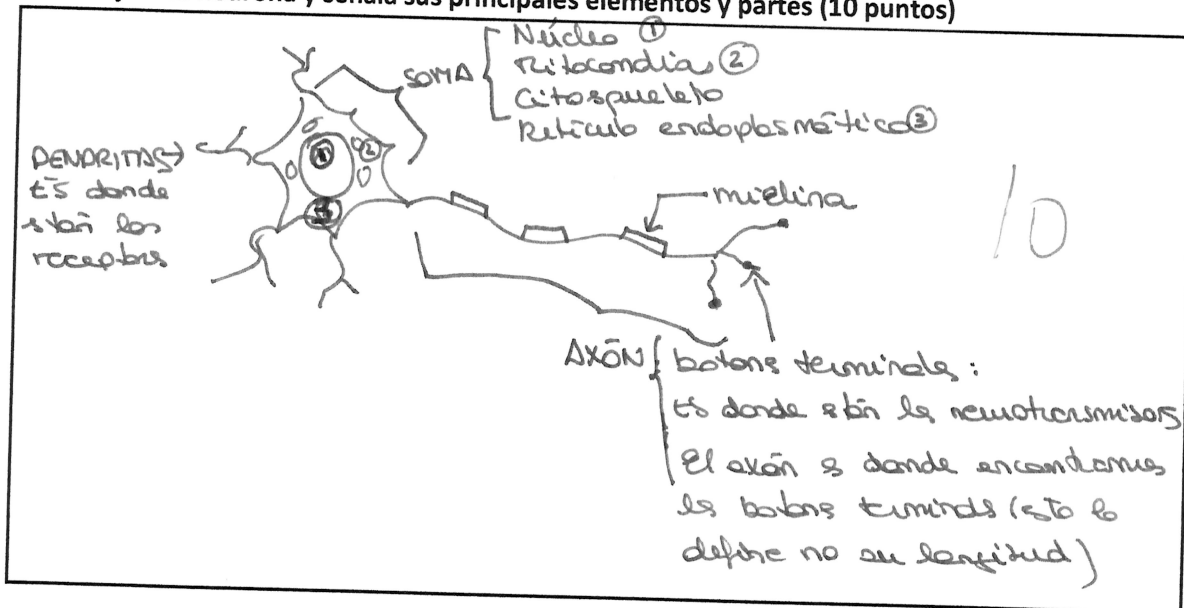 y señala sus principales elementos y partes (10 puntos)
Núcleo ①
SOMA
Mitocondias ②
Citosqueleto
Retículo endoplasmático ③
DENDRITAS→
ES donde
stán los
receptors
mielina
10
AXÓN
botons terminals:
ES donde stán ls neurotransmisors
El axón s donde encontramos
ls botons terminals (esto lo
define no su longitud)
① ② ③